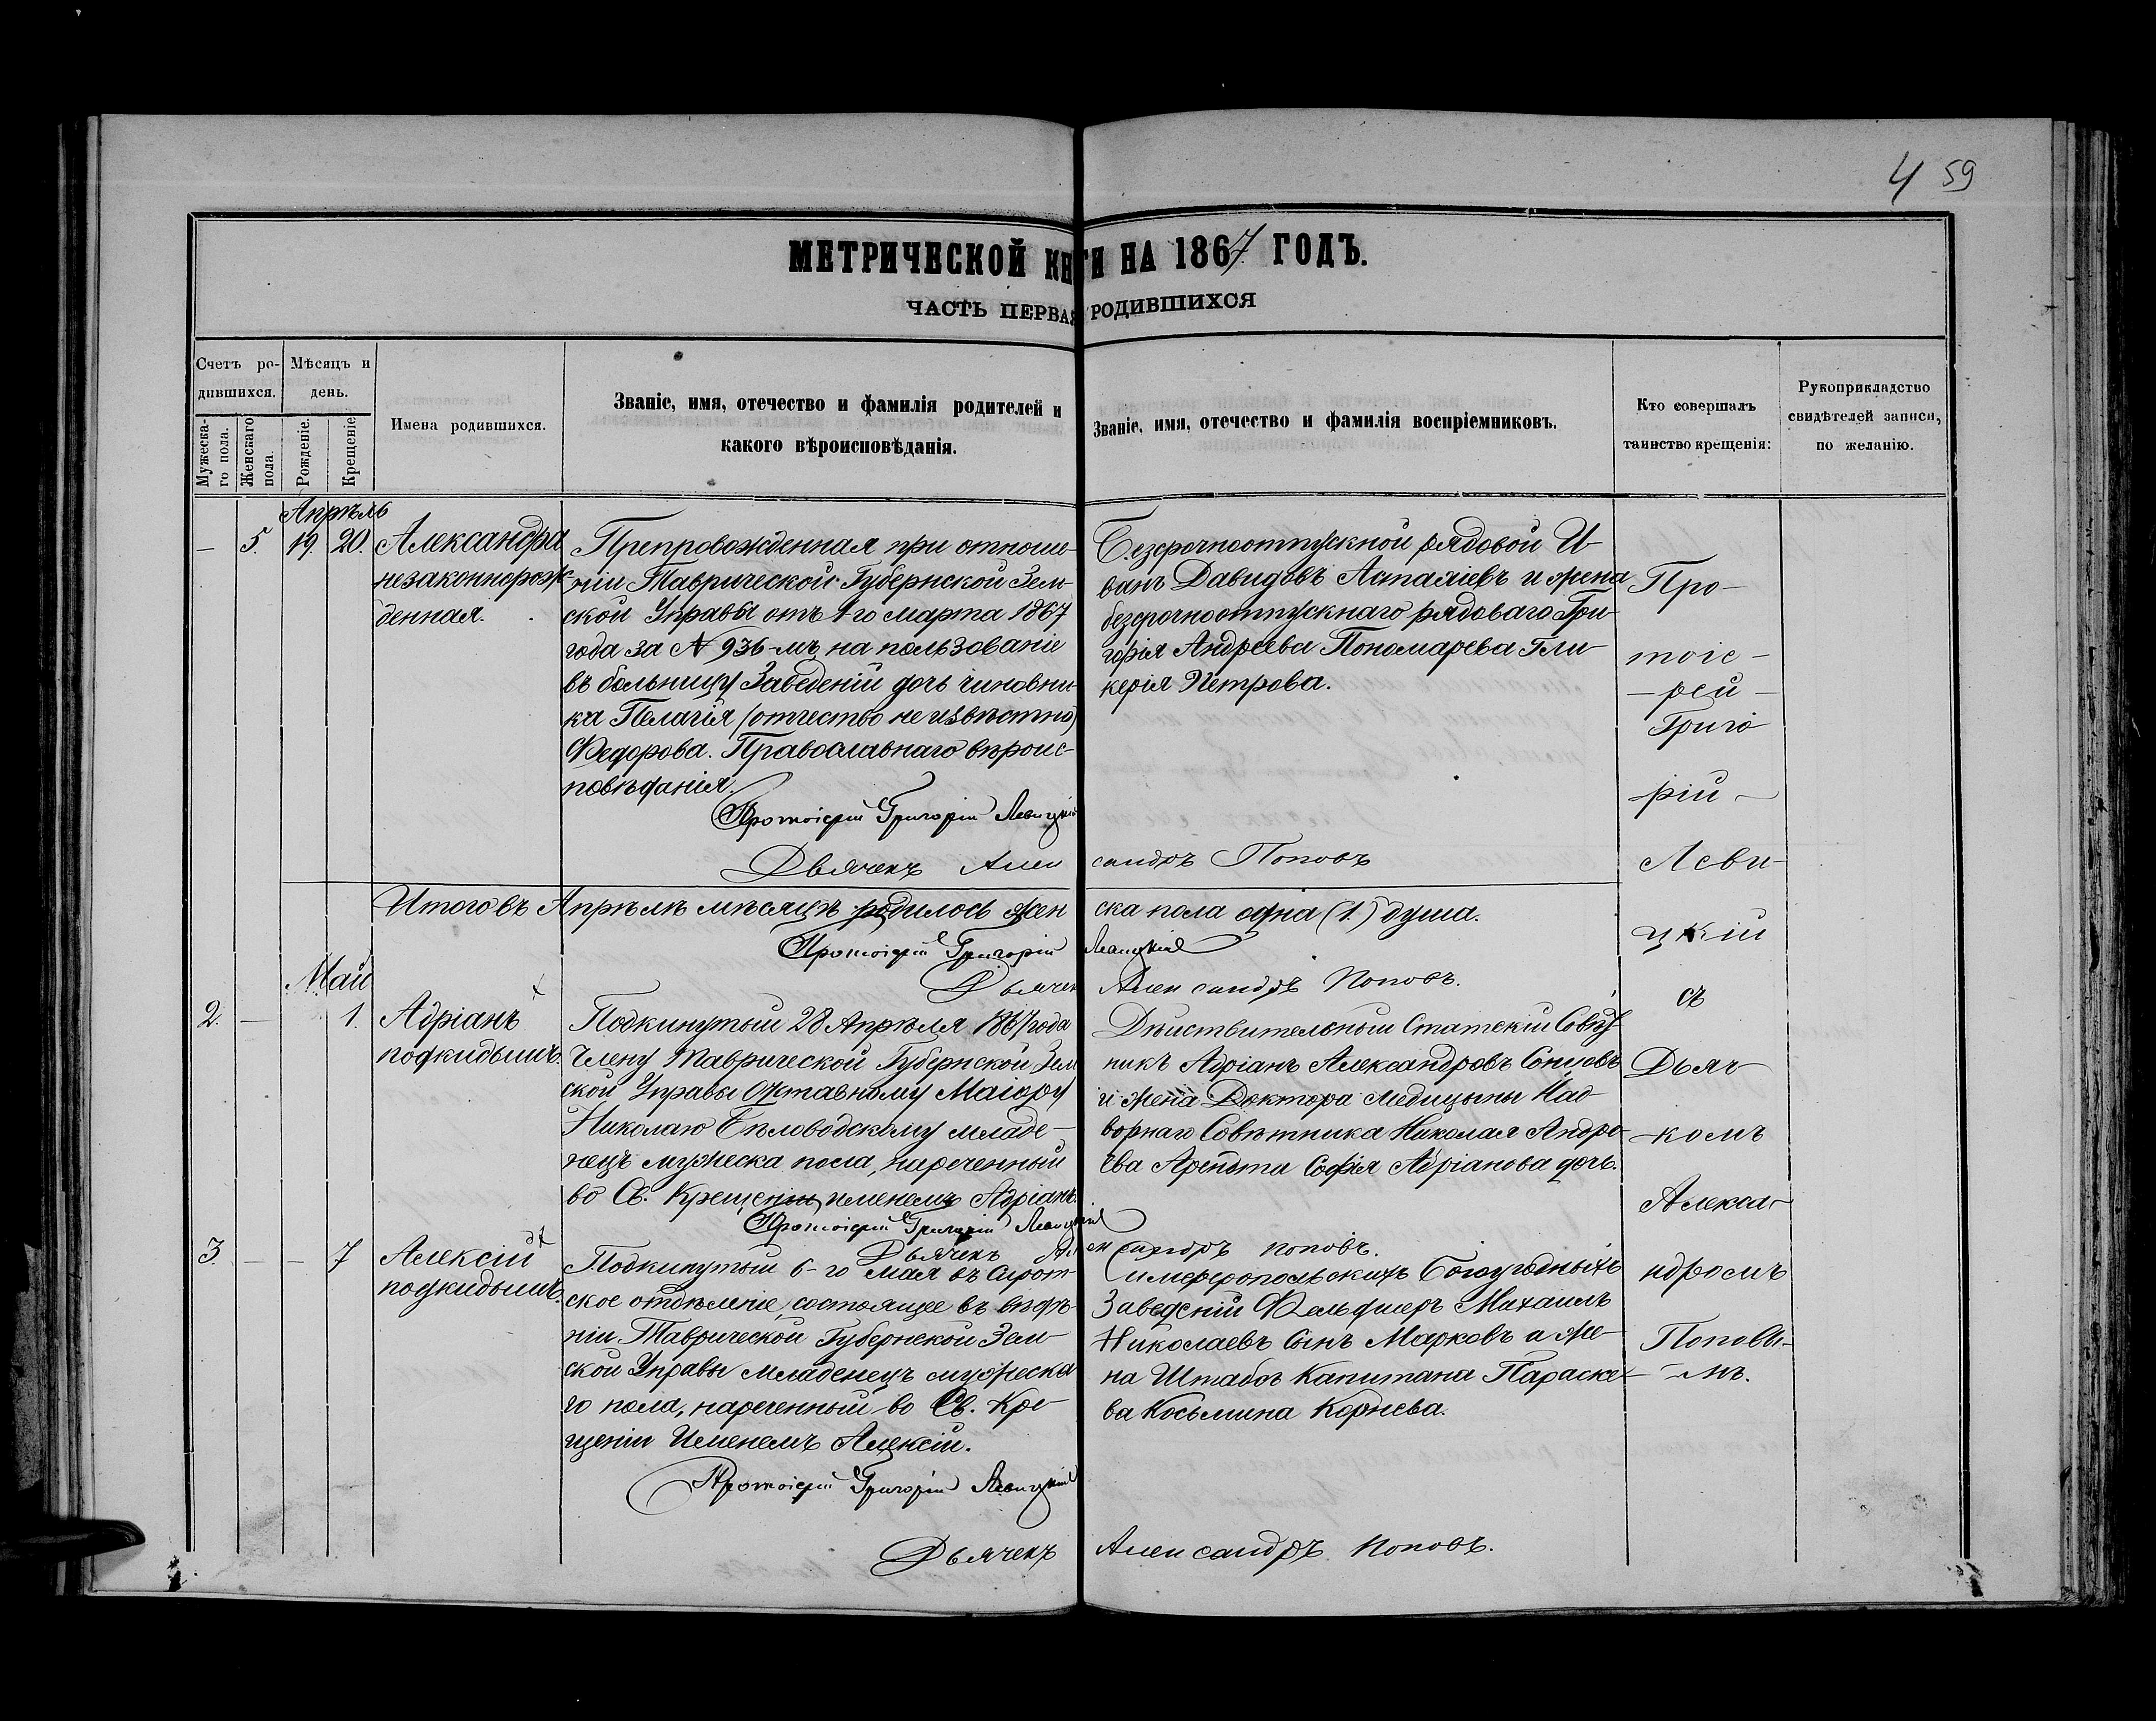 4 59
МЕТРИЧЕСКОЙ КН ГИ НА 1867 ГОДЪ.
ЧАСТЬ ПЕРВАЯ РОДИВШИХСЯ
Счетъ ро-
дившихся.
Мѣсяцъ и
день.
Мужеска-
го пола.
Женскаго
пола.
Рожденіе.
Крещеніе
Имена родившихся.
Званіе, имя, отечество и фамилія родителей и
какого вѣроисповѣданія.
Званіе, имя, отечество и фамилія воспріемниковъ.
Кто совершалъ
таинство крещенія:
Рукоприкладство
свидѣтелей записи,
по желанію.
Апрѣль
— 5. 19. 20.
Александра
незаконнорож-
денная.
Препровожденная при отноше-
ніи Таврической Губернской Зем-
ской Управы отъ 1-го Марта 1867
года за № 936-мъ на пользованіе
въ больницу Заведеній дочь чиновни-
ка Пелагія (отчество не извѣстно)
Федорова. Православнаго вѣроис-
повѣданія.
Протоіерей Григорій Левицкій
Дьячекъ Александръ Поповъ
Безсрочноотпускной рядовой И-
ванъ Давидовъ и жена
безсрочноотпускнаго рядоваго Гри-
горія Андреева Пономарева Гли-
керія Петрова.
Итого въ Апрѣлѣ мѣсяцѣ родилось женска пола одна (1.) душа.
Протоіерей Григорій Левицкій
Дьячекъ Александръ Поповъ.
Май
2. — 1.
Адріанъ
подкидышъ.
Подкинутый 28 Апрѣля 1867 года
Члену Таврической Губернской Зем
ской Управы Отставному Маіору
Николаю Бѣловодскому младе-
нецъ мужеска пола, нареченный
во Св. Крещеніи именемъ Адріанъ.
Протоіерей Григорій Левицкій
Дьячекъ Александръ Поповъ.
Дѣйствительный Статскій Совѣт-
никъ Адріанъ Александровъ Сонцовъ
и жена Доктора Медицыны Над-
ворнаго Совѣтника Николая Андре-
ева Арендта Софія Адріанова дочь.
3. — — 7
Алексій
подкидышъ.
Подкинутый 6-го Мая въ Сирот-
ское отдѣленіе, состоящее въ вѣдѣ-
ніи Таврической Губернской Зем-
ской Управы Младенецъ мужеска
го пола, нареченный во Св. Кре-
щеніи Именемъ Алексій.
Протоіерей Григорій Левицкій
Дьячекъ Александръ Поповъ.
Симферопольскихъ Богоугодныхъ
Заведеній Фельдшеръ Михаилъ
Николаевъ Сынъ Марковъ и же-
на Штабсъ Капитана Параске-
ва Косьмина Корнева.
Про-
тоіе-
-рей-
Григо
-рій-
Леви-
цкій
съ
Дьяч-
-комъ
Алекса-
ндромъ
Поповы-
-мъ.